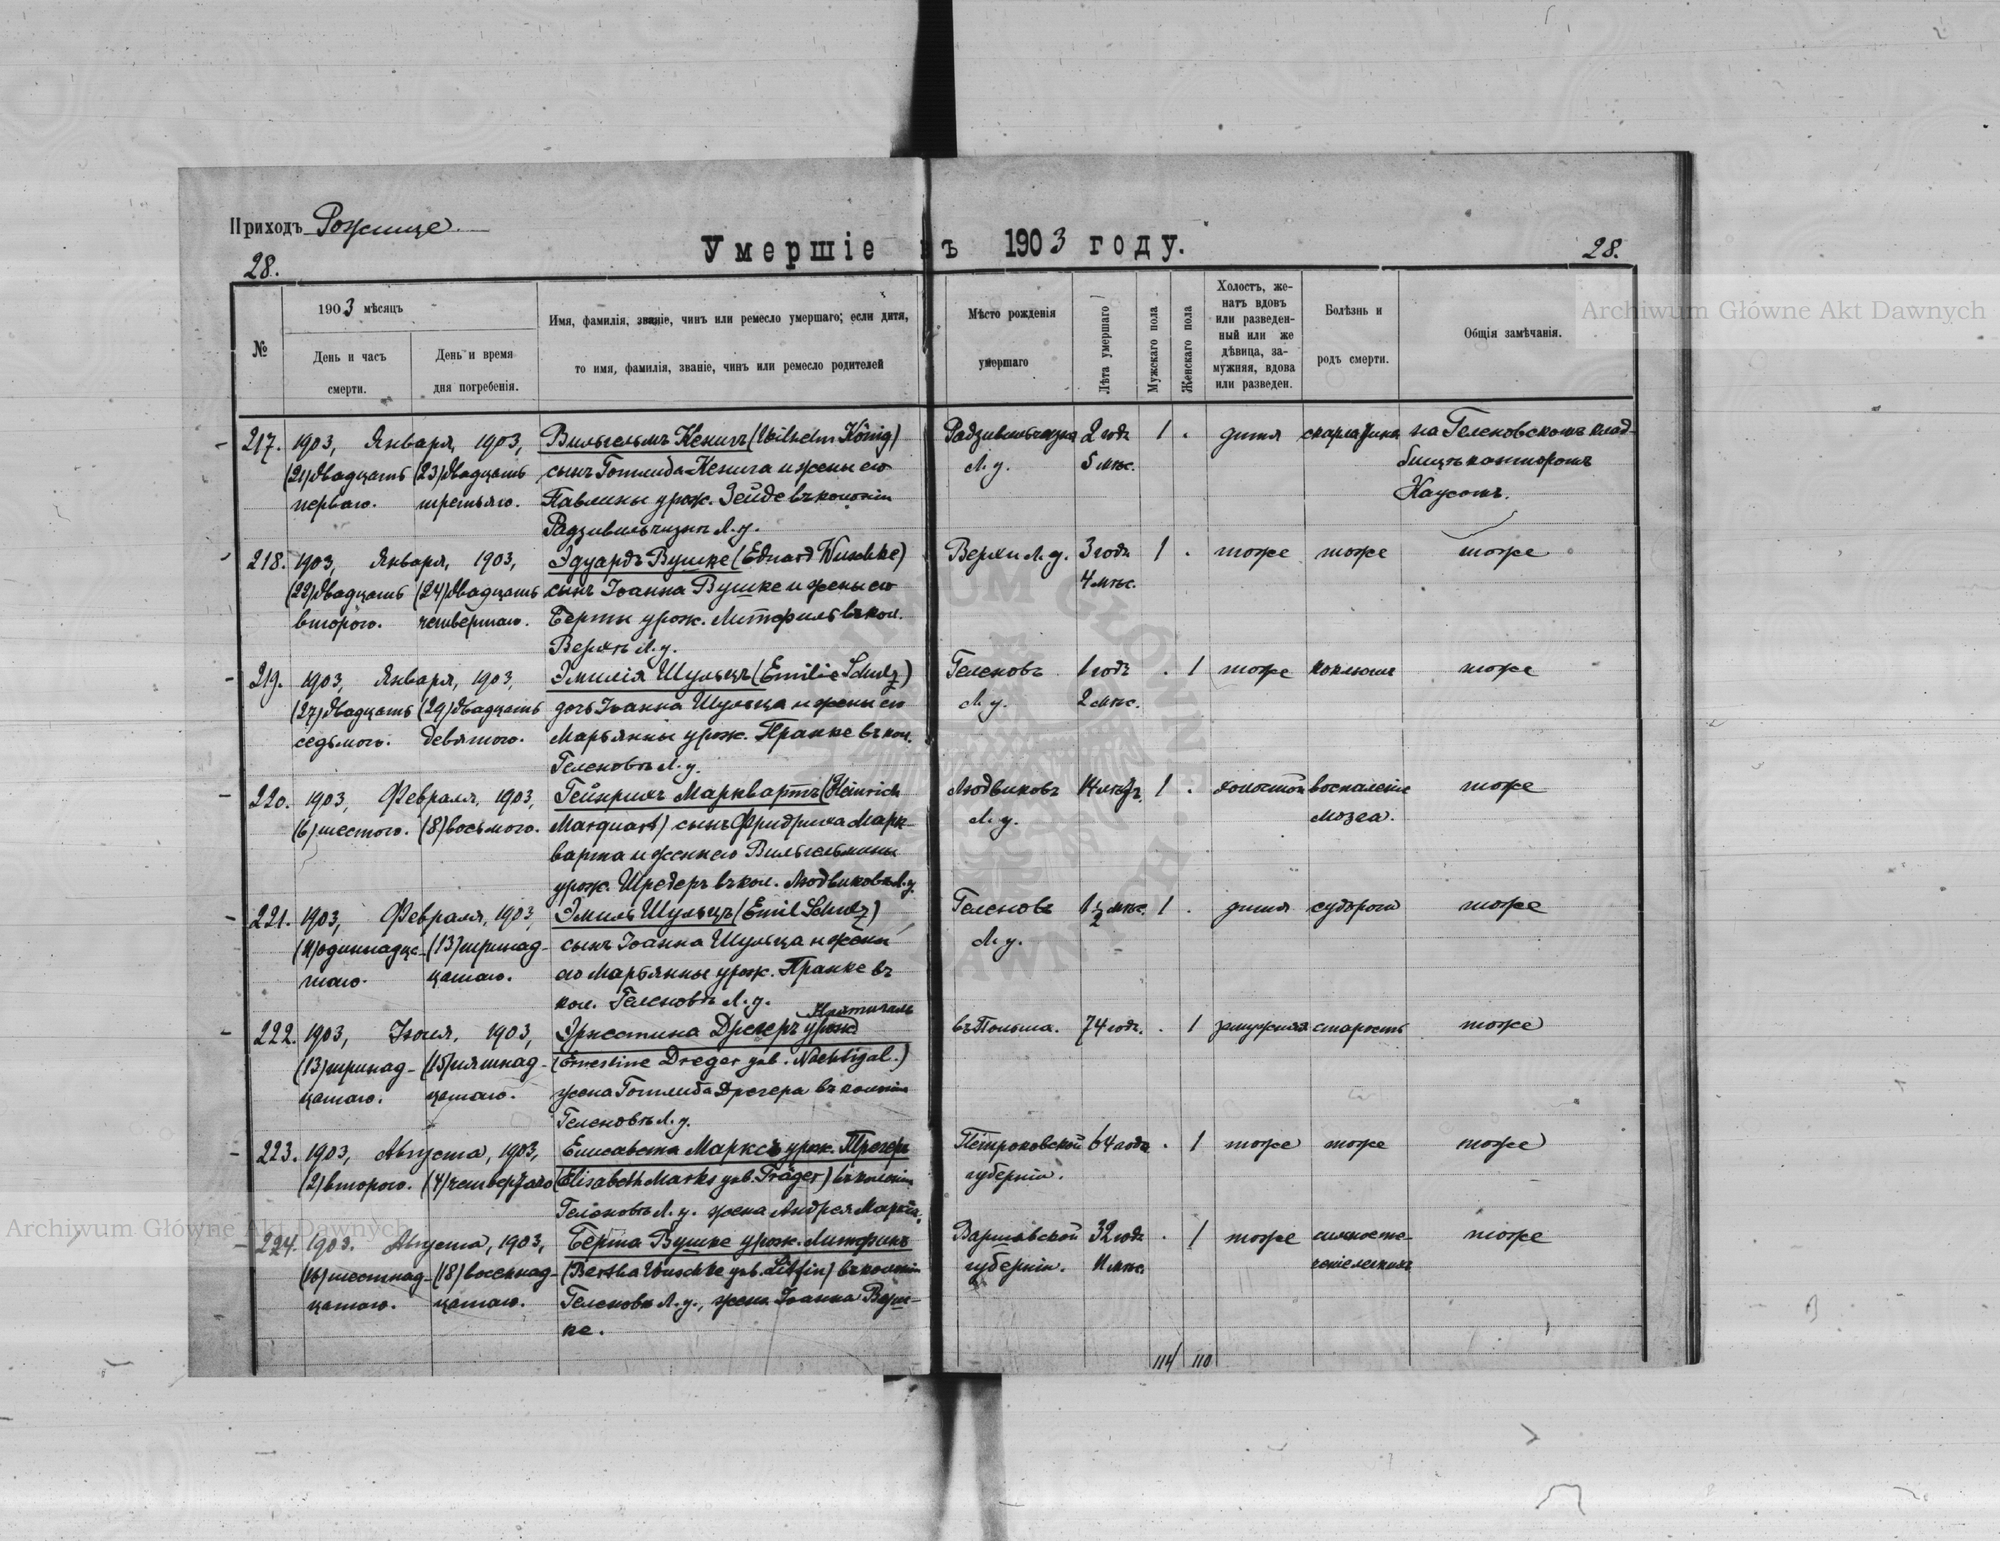 Приходъ Рожище.
Умершіе въ 1903 году.
28.
28.
Archiwum Główne Akt Dawnych
№
1903 мѣсяцъ
День и часъ
смерти.
День и время
дня погребенія.
Имя, фамилія, званіе, чинъ или ремесло умершаго; если дитя,
то имя, фамилія, званіе, чинъ или ремесло родителей
Мѣсто рожденія
умершаго
Лѣта умершаго
Мужскаго пола
Женскаго пола
Холостъ, же-
натъ вдовъ
или разведен-
ный или же
дѣвица, за-
мужняя, вдова
или разведен.
Болѣзнь и
родъ смерти.
Общія замѣчанія.
217. 1903, Января, 1903, Вильгельмъ Кенигъ (Wilhelm König) Радзивильчизна 2 года 1 . дитя скарлатина на Геленовскомъ клад-
(21) двадцать (23) двадцать сынъ Готлиба Кенига и жены его Л. у. 5 мѣс. бищѣ канторомъ
перваго. третьяго. Павлины урож. Зейде въ колоніи Каусомъ.
Радзивильчизнѣ Л. у.
218. 1903, Января, 1903, Эдуардъ Вушке (Eduard Wuschke) Верхи Л. у. 3 года 1 . тоже тоже тоже
(22) двадцать (24) двадцать сынъ Іоанна Вушке и жены его 4 мѣс.
второго. четвертаго. Берты урож. въ кол.
Верхъ Л. у.
219. 1903, Января, 1903, Эмилія Шульцъ (Emilie Schulz) Геленовъ 1 годъ . 1 тоже коклюшъ тоже
(27) двадцать (29) двадцать дочь Іоанна Шульца и жены его Л. у. 2 мѣс.
седьмого. девятого. Марьянны урож. Пранке въ кол.
Геленовъ Л. у.
220. 1903, Февраля, 1903, Гейнрихъ Марквартъ (Heinrich Людвиковъ 14 лѣтъ 1 . холостой воспаленіе тоже
(6) шестого. (8) восьмого. Marquart) сынъ Фридриха Марк- Л. у. мозга.
варта и жены его Вильгельмины
урож. Шредеръ въ кол. Людвиковъ Л. у.
221. 1903, Февраля, 1903, Эмиль Шульцъ (Emil Schulz) Геленовъ 1½ мѣс. 1 . дитя судороги тоже
(11) одиннадца- (13) тринад- сынъ Іоанна Шульца и жены Л. у.
таго. цатаго. его Марьянны урож. Пранке въ
кол. Геленовъ Л. у.
Нахтигаль
222. 1903, Іюля, 1903, Эрнестина Дрегеръ урож. въ Польша. 74 года. . 1 замужняя старость тоже
(13) тринад- (15) пятнад- (Ernestine Dreger geb. Nachtigal.)
цатаго. цатаго. жена Готлиба Дрегера въ колоніи
Геленовъ Л. у.
223. 1903, Августа, 1903, Елисавета Марксъ урож. Трегеръ Петроковской 64 года . 1 тоже тоже тоже
(2) второго. (4) четвертаго (Elisabeth Marks geb. Träger) въ колоніи губерніи.
Геленовъ Л. у. жена Андрея Маркса.
Archiwum Główne Akt Dawnych
224. 1903. Августа, 1903, Берта Вушке урож. Литфинъ Варшавской 32 года . 1 тоже тоже
(16) шестнад- (18) восемнад- (Bertha Wuschke geb. Litfin) въ колоніи губерніи. 11 мѣс.
цатаго. цатаго. Геленовъ Л. у., жена Іоанна Вуш-
ке.
114 110